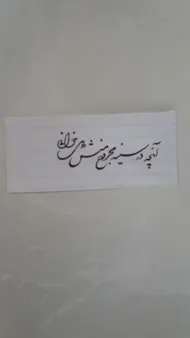 آنچه در سینه مجروح منش می‌خوانند